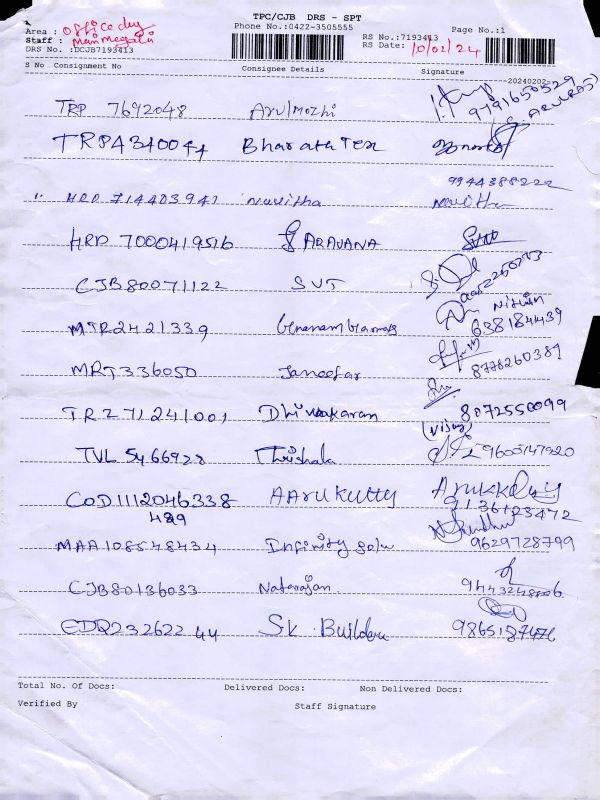 TPC/CJB DRS - SPT
Phone No.:0422-3505555 Page No.:1
Area : Office dly RS No.:7193413
Staff : Manimegalai RS Date: 10/02/24
DRS No. :DCJB7193413
S No Consignment No Consignee Details Signature
20240202
TRP 7692048 Arulmozhi 9791650529
TRPA340044 Bharath Tex
HRD 714403941 Navitha 9944388222
HRD 7000419516 SARAVANA
CJB80071122 SVT
MTR2421339 Nithin 638184439
MRT336050 Janeefar 8778260389
TRZ71241001 Dhivakaran 8072550099
(Vijay)
TVL 5466928 Thrishala 9600147920
COD1112046338 AARUKUTTY
489 9136123472
MAA108548434 Infinity Solu 9629728799
CJB80136033 Natarajan 9443248806
EDQ23262244 Sk Builders 9865187476
Total No. Of Docs: Delivered Docs: Non Delivered Docs:
Verified By Staff Signature